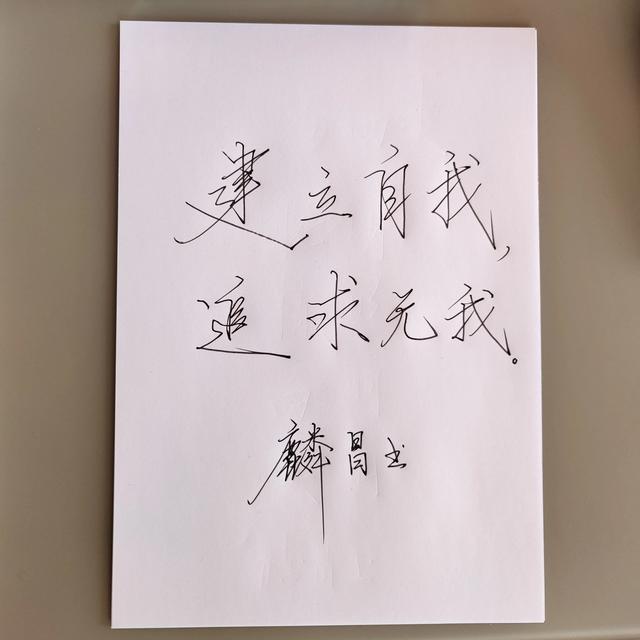 建立自我，
追求无我。
麟昌书